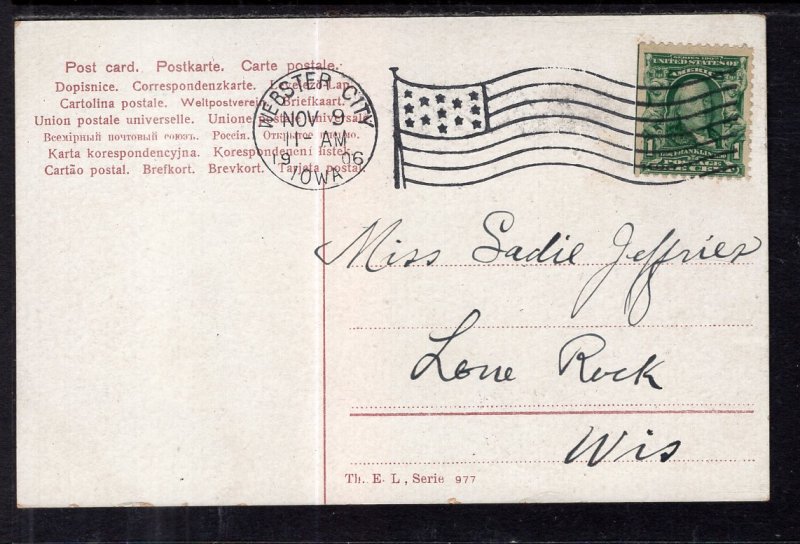 Post card. Postkarte. Carte postale.
Dopisnice. Correspondenzkarte.
Cartolina postale. Weltpostverein. Briefkaart.
Union postale universelle. Unione postale universale
Всемірный почтовый союзъ. Россія. Открытое
Karta korespondencyjna. Korespondenční listek
Cartão postal. Brefkort. Brevkort. Tarjeta postal
WEBSTER CITY
NOV 9
11-AM
19 06
IOWA
SERIES 1902
UNITED STATES OF
AMERICA
FRANKLIN
POSTAGE
1
Miss Sadie Jeffries
Lone Rock
Wis
Th. E. L., Serie 977